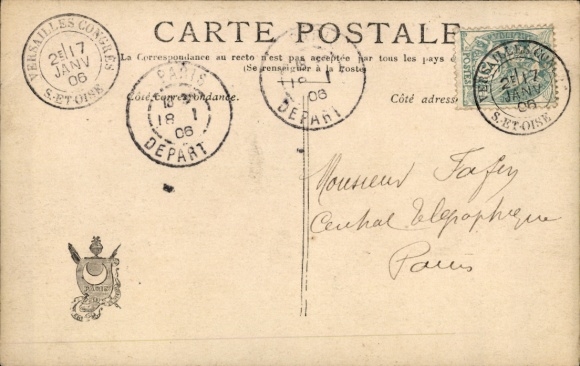 CARTE POSTALE
La Correspondance au recto n'est pas acceptée par tous les pays
(Se renseigner à la Poste)
VERSAILLES CONGRÈS
2E 17
JANV
06
S.-ET-OISE
PARIS
18 1
06
DEPART
18 1
06
DEPART
VERSAILLES CONGRÈS
2E 17
JANV
06
S.-ET-OISE
Côté correspondance.
Côté adresse
Monsieur
Central Télégraphique
Paris